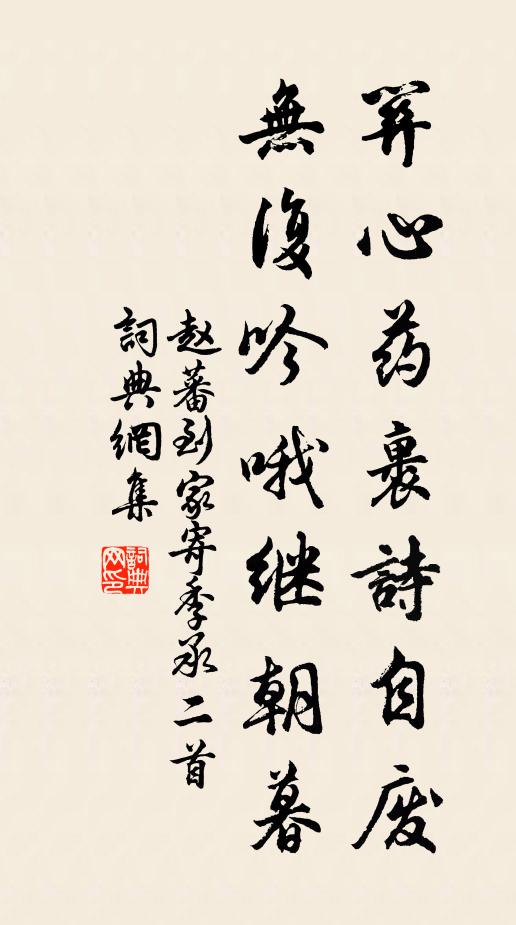 关心药裹詩自废
無復吟哦继朝暮
赵蕃到家寄季承二首
詞典網集
詞典网印